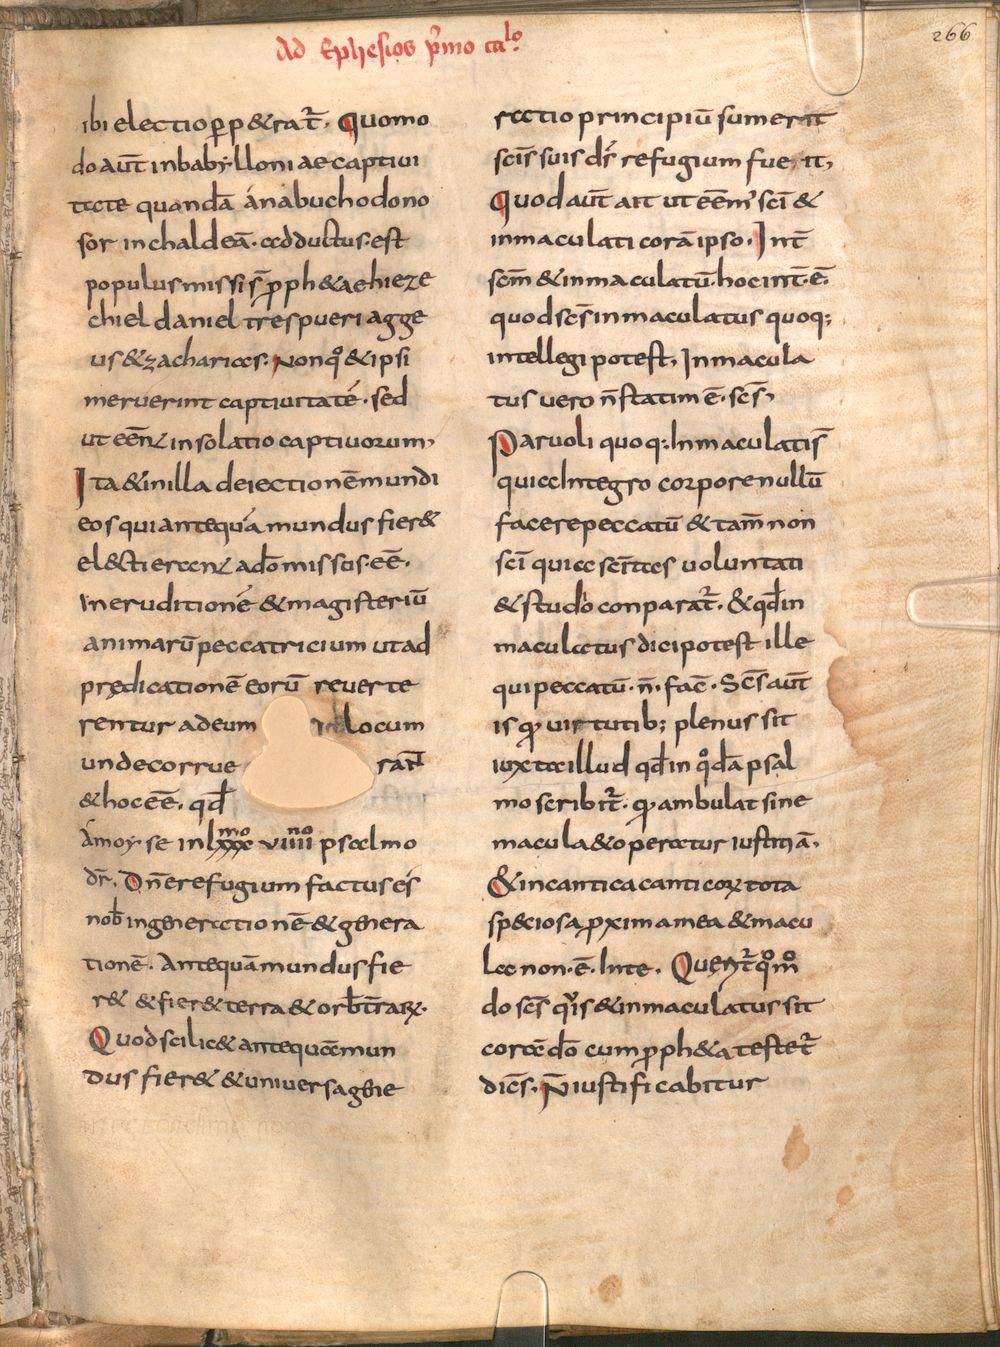 Ad Ephesios p̅mo ca̅lo
266
ibi electio p̲p&rat̅. Quomo
do aut̅ inbabylloniae captiui
tate quanda̅ ánabuchodono
sor inchaldea̅. adductus. est
populus missis̅ p̲ph&ae hieze
chiel daniel tres pueri agge
us & zacharias. Non q̊ & ipsi
meruerint captiuitate̅. sed
ut ee̅nt insolatio captiuorum,
Ita & inilla deiectione̅ mundi
eos qui antequa̅ mundus fier&
el&ti erant ad̅o missus. ee̅.
In eruditione̅ & magisteriu̅
animaru̅ peccatricium ut ad
prędicatione̅ eoru̅ reuerte
rentur ad eum locum
unde corrue rant̅
& hoc ee̅. qd̅
Ámoyse in lxxxmo viiiino psalmo
dr̅. Dn̅e refugium factus es
nob̅ in generatione̅ & genera
tione̅. Antequa̅ mundus fie
r& & fier& terra & orb̅ t̅rarꝝ.
Quod scilic& antequa̅ mun
dus fier& & uniuersa gene
ratio principiu̅ sumerat
sci̅s suis ds̅ refugium fuerit,
Quod aut̅ ait ut ee̅m' sci̅ &
inmaculati cora̅ ipso. Int̅
scm̅ & inmaculatu̅. hoc int̅. e̅.
quod scs̅ inmaculatus quoq;
intellegi potest, Inmacula
tus uero n̅ statim e̅. scs̅,
Paruoli quoq; Inmaculatis̅
quia Integro corpore nullu̅
facere peccatu̅ & tam̅ non
sci̅ quia sc̅itas uoluntati
& studio conparat̅. & qd̅ in
maculatus dici potest ille
qui peccatu̅. n̅. fac̅. Scs̅ aut̅
is q̲ uirtutib; plenus sit
iuxta illud qd̅ in q̊da̅ psal
mo scribit̅. q̲ ambulat sine
macula & operatur iustitia̅.
& in cantica canticoꝝ tota
speciosa p̲xima mea & macu
la non. e̅. In te. Querit̅ q̊m̊
do scs̅ q̊is & inmaculatus sit
cora̅ do̅ cum p̲ph&a testet̅
dice̅s. N̅ iustificabitur